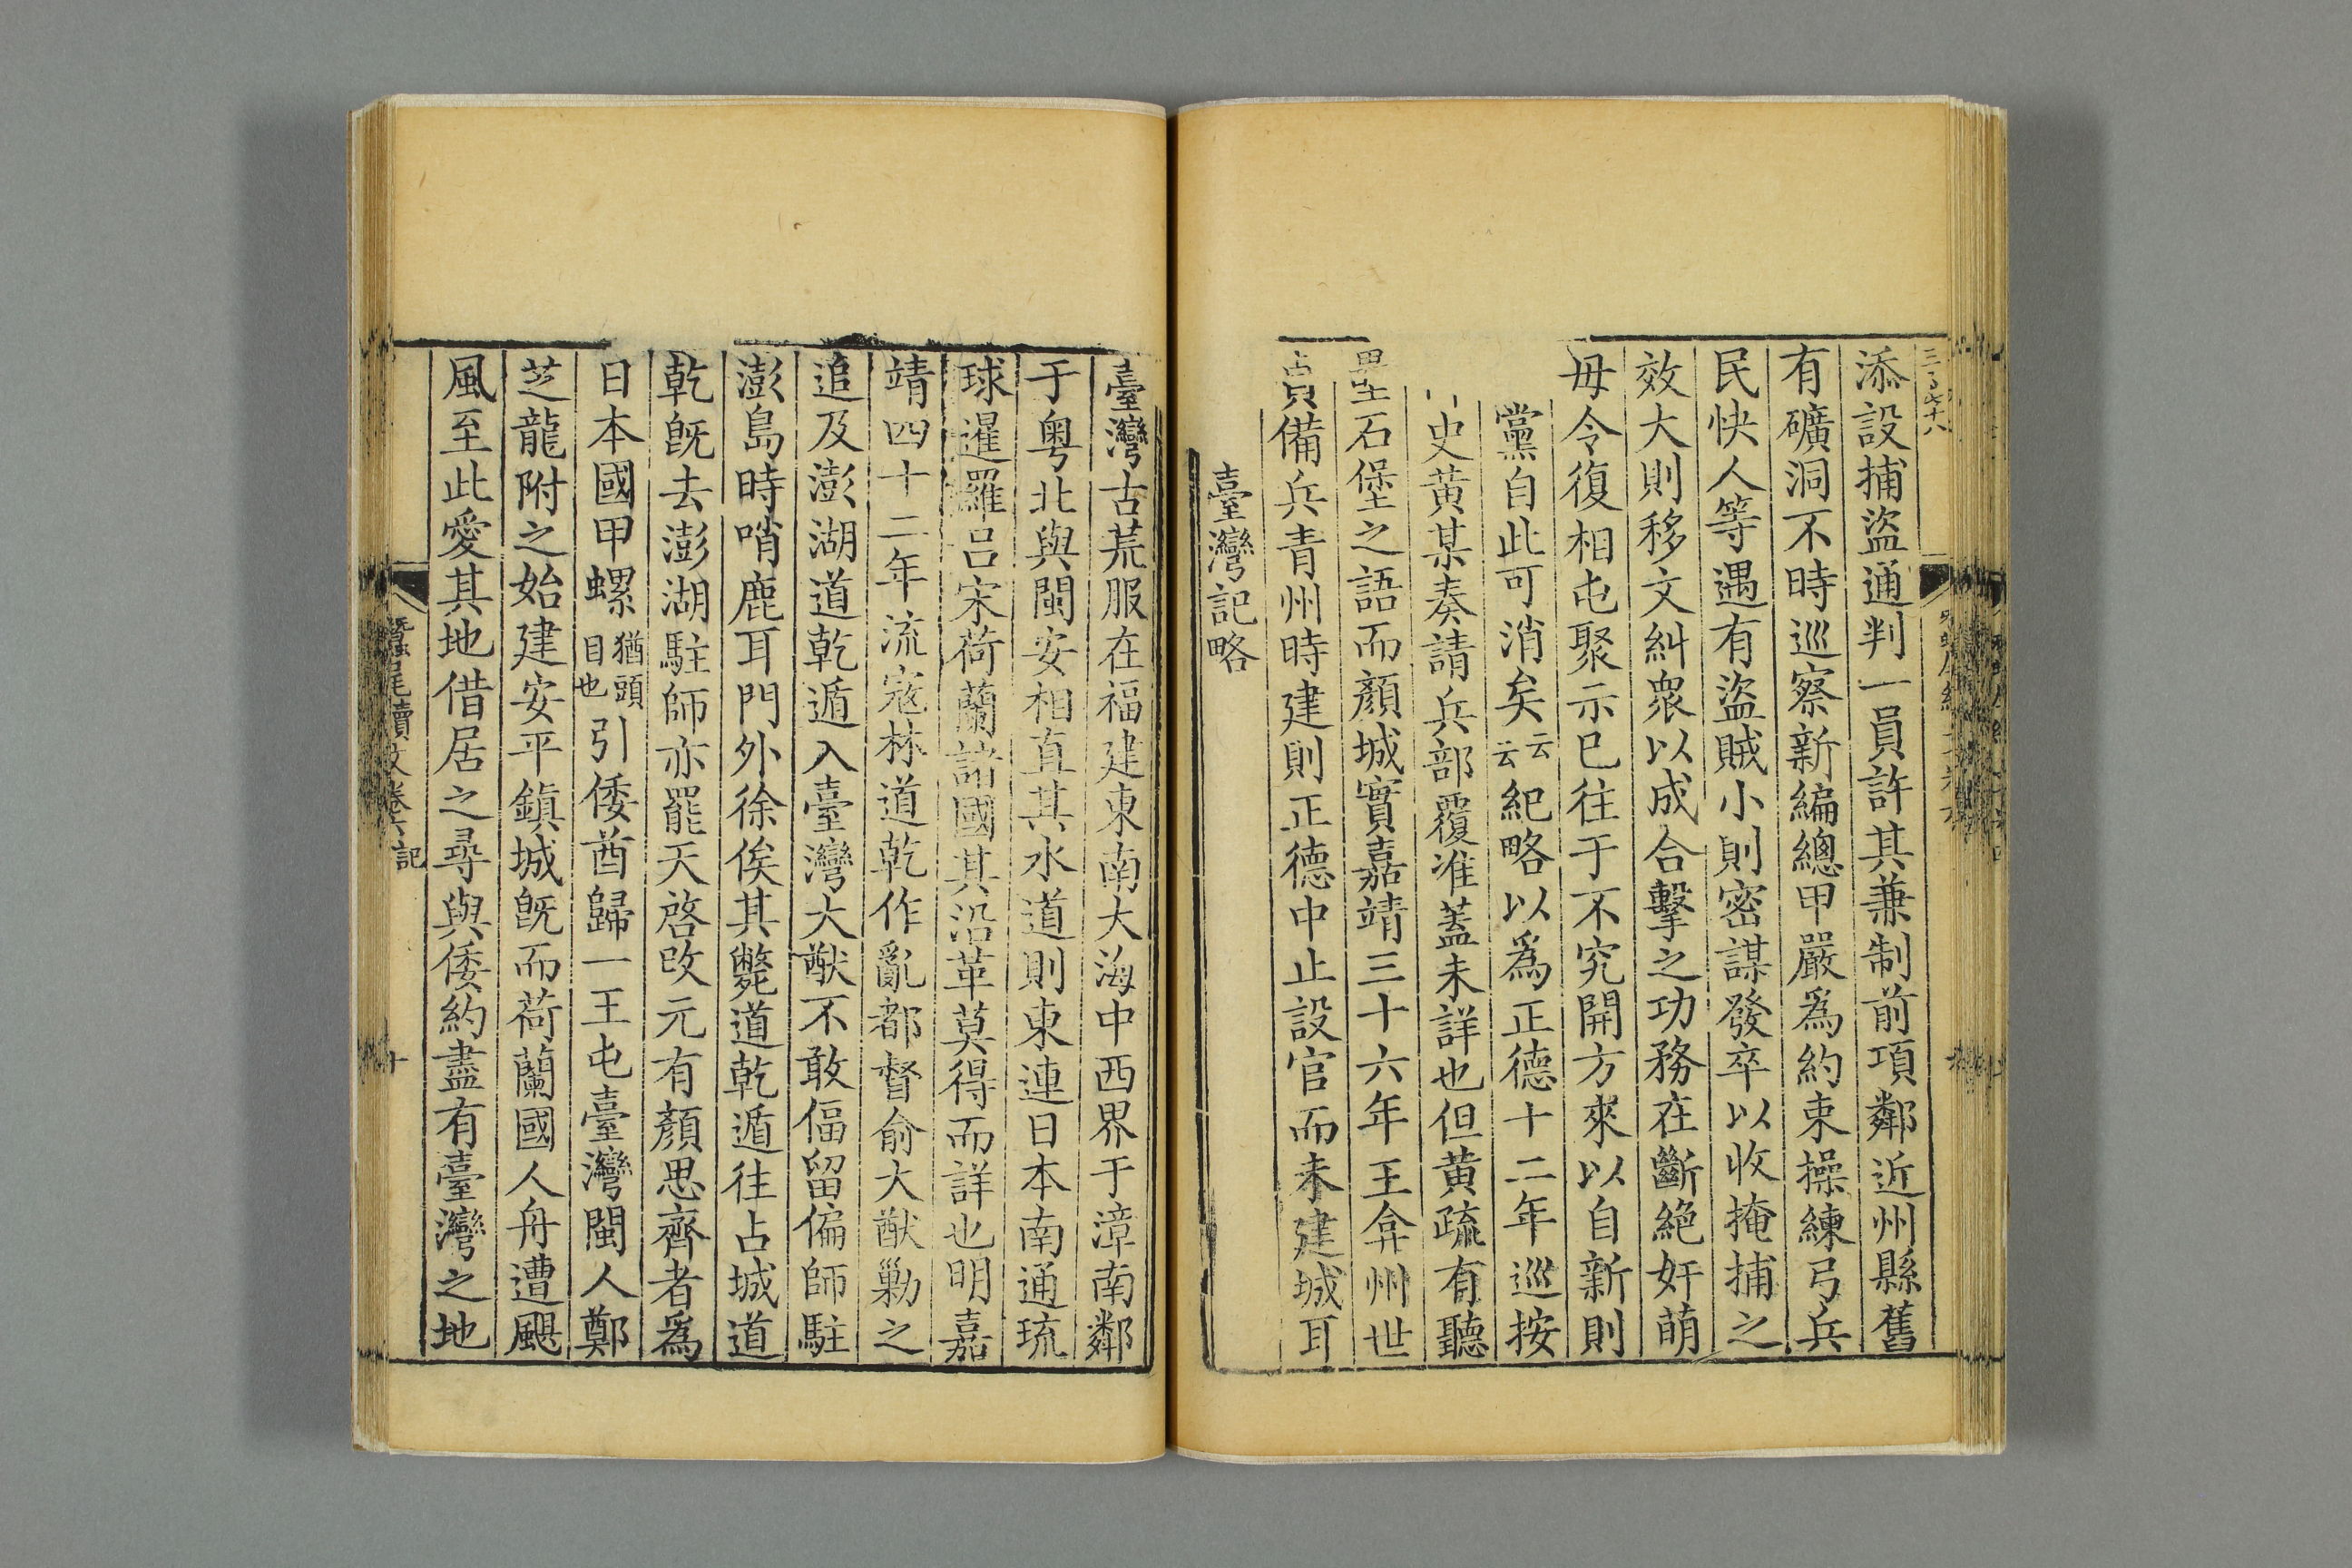 添設捕盜通判一員許其兼制前項鄰近州縣舊
有礦洞不時巡察新編總甲嚴爲約束操練弓兵
民快人等遇有盜賊小則密謀發卒以收掩捕之
效大則移文糾衆以成合擊之功務在斷絕奸萌
毋令復相屯聚示已往于不究開方來以自新則
黨自此可消矣云云紀略以爲正德十二年巡按
史黃某奏請兵部覆准蓋未詳也但黃疏有聽
壘石堡之語而顏城實嘉靖三十六年王弇州世
貞備兵青州時建則正德中止設官而未建城耳
臺灣記略
臺灣古荒服在福建東南大海中西界于漳南鄰
于粵北與閩安相直其水道則東連日本南通琉
球暹羅呂宋荷蘭諸國其沿革莫得而詳也明嘉
靖四十二年流寇林道乾作亂都督俞大猷勦之
追及澎湖道乾遁入臺灣大猷不敢偪留偏師駐
澎島時哨鹿耳門外徐俟其斃道乾遁往占城道
乾旣去澎湖駐師亦罷天啓改元有顏思齊者爲
日本國甲螺猶頭目也引倭酋歸一王屯臺灣閩人鄭
芝龍附之始建安平鎮城旣而荷蘭國人舟遭颶
風至此愛其地借居之尋與倭約盡有臺灣之地
蠶尾續文卷六 記
十